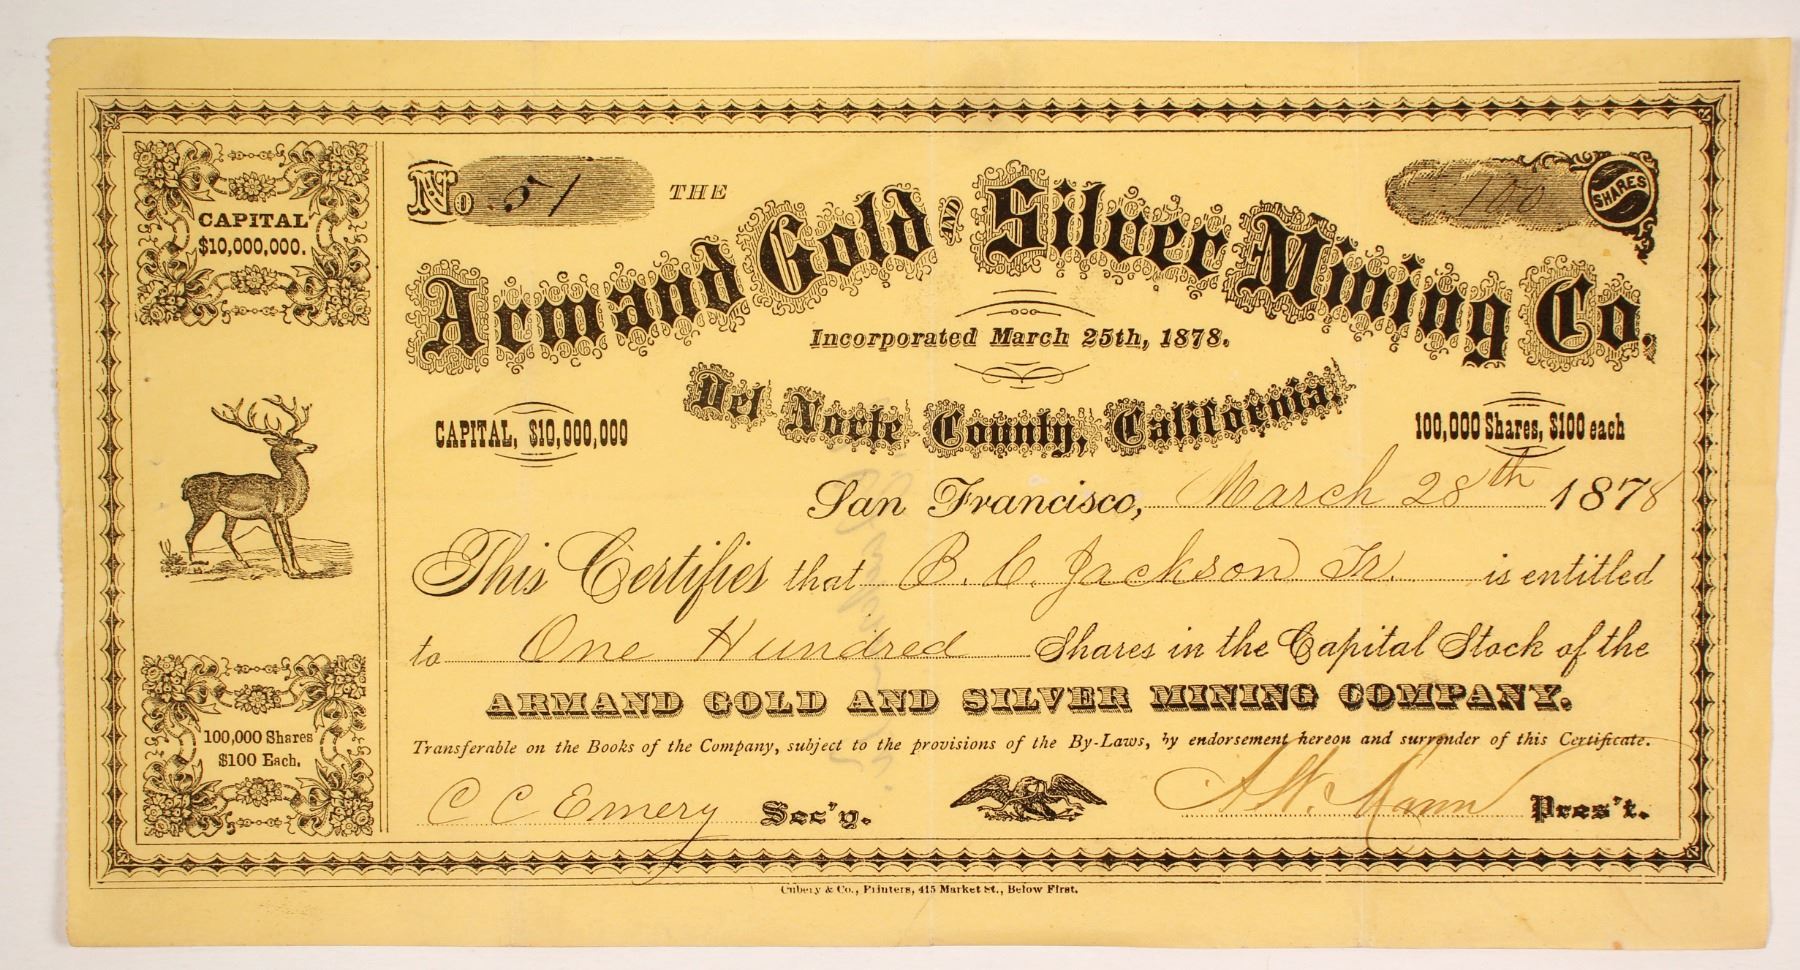 No 51
THE
100 SHARES
Armand Gold AND Silver Mining Co.
Incorporated March 25th, 1878.
Del Norte County, California.
CAPITAL
$10,000,000.
CAPITAL, $10,000,000
100,000 Shares, $100 each
San Francisco, March 28th 1878
This Certifies that B. C. Jackson Jr. is entitled
to One Hundred Shares in the Capital Stock of the
ARMAND GOLD AND SILVER MINING COMPANY.
100,000 Shares
$100 Each.
Transferable on the Books of the Company, subject to the provisions of the By-Laws, by endorsement hereon and surrender of this Certificate.
C C Emery Sec'y. Mann Pres't.
Cubery & Co., Printers, 415 Market St., Below First.